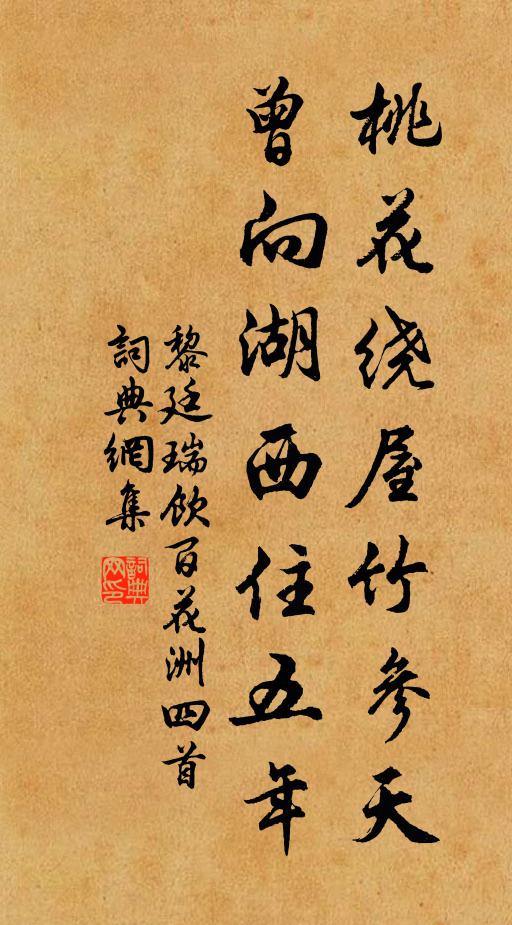 桃花绕屋竹参天
曾向湖西住五年
黎廷瑞饮百花洲四首
詞典網集
詞典网印